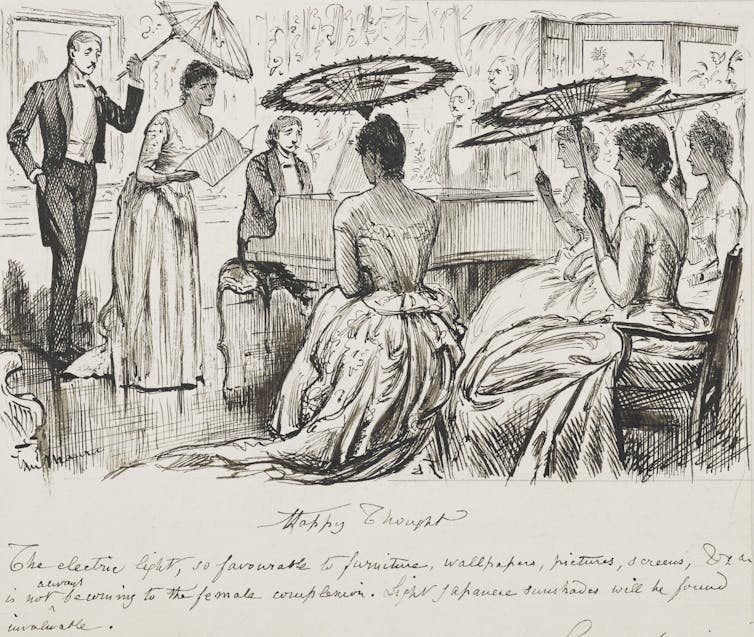 du Maurier
Happy Thought
The electric light, so favourable to furniture, wallpapers, pictures, screens, &c
always
is not becoming to the female complexion. Light Japanese sunshades will be found
invaluable.